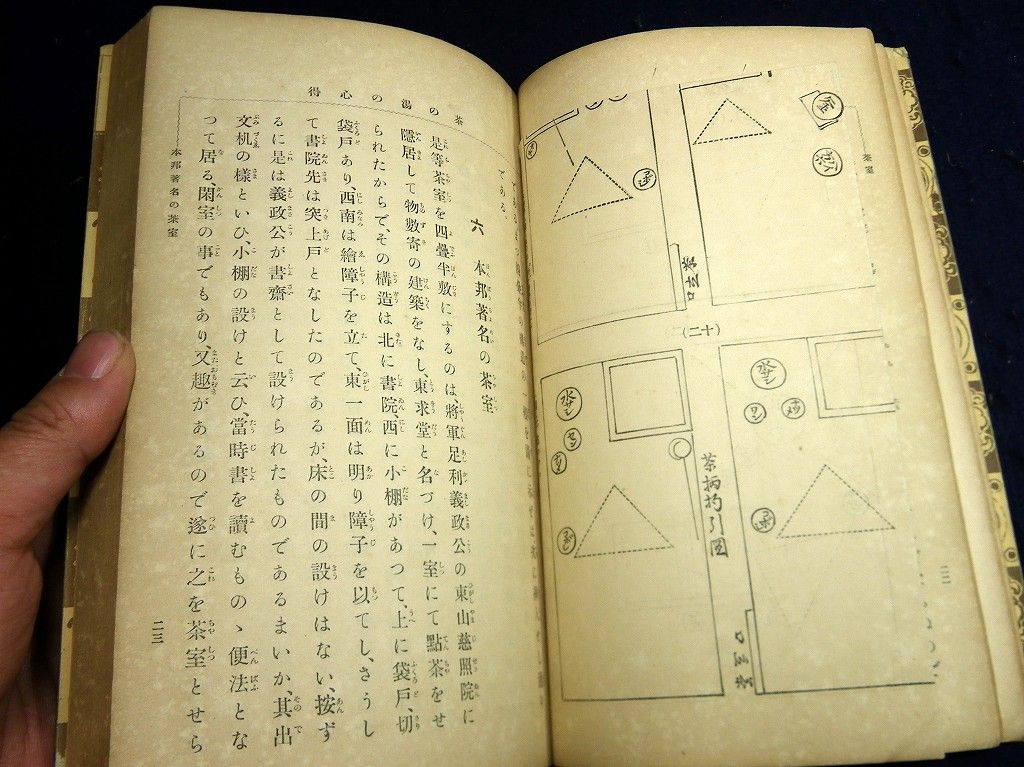 茶室
(二十)
茶柄杓引圖
水サシ
水サシ
二二
茶の湯の心得
である。
六　本邦著名の茶室
是等茶室を四疊半敷にするのは、將軍足利義政公の東山慈照院に
隱居して物數寄の建築をなし、東求堂と名づけ、一室にて點茶をせ
られたからで、その構造は北に書院、西に小棚があつて、上に袋戸、切
袋戸あり、西南は繪障子を立て、東一面は明り障子を以てし、さうし
て書院先は突上戸となしたのであるが、床の間の設けはない、按ず
るに是は義政公が書齋として設けられたものであるまいか、其出
文机の樣といひ、小棚の設けと云ひ、當時書を讀むものゝ便法とな
つて居る、閑室の事でもあり、又趣があるので遂に之を茶室とせら
本邦著名の茶室
二三